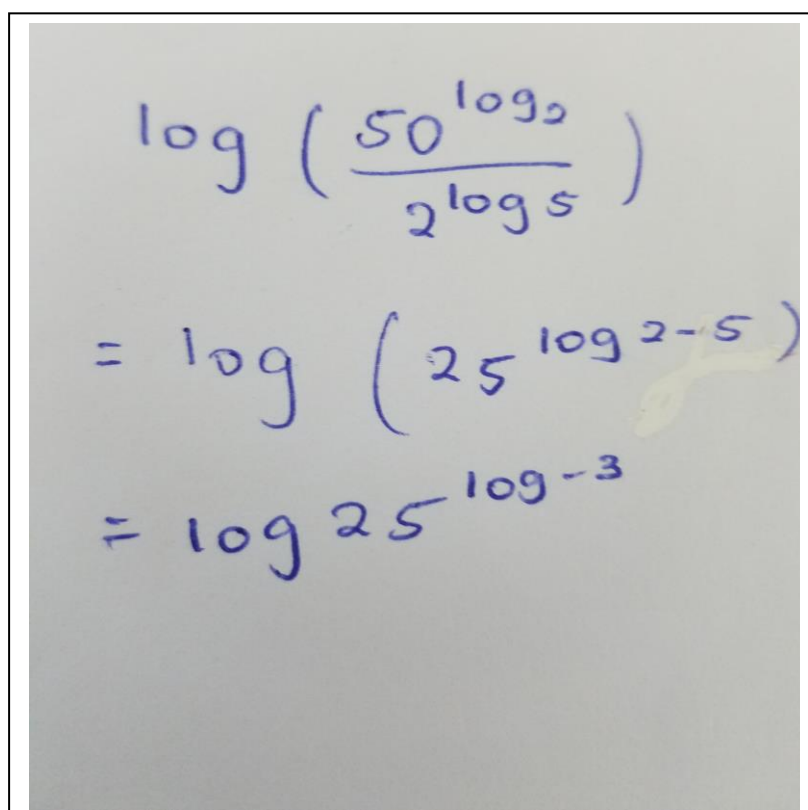 log ( 50^log 2 / 2^log 5 )
= log ( 25^log 2-5 )
= log 25^log -3